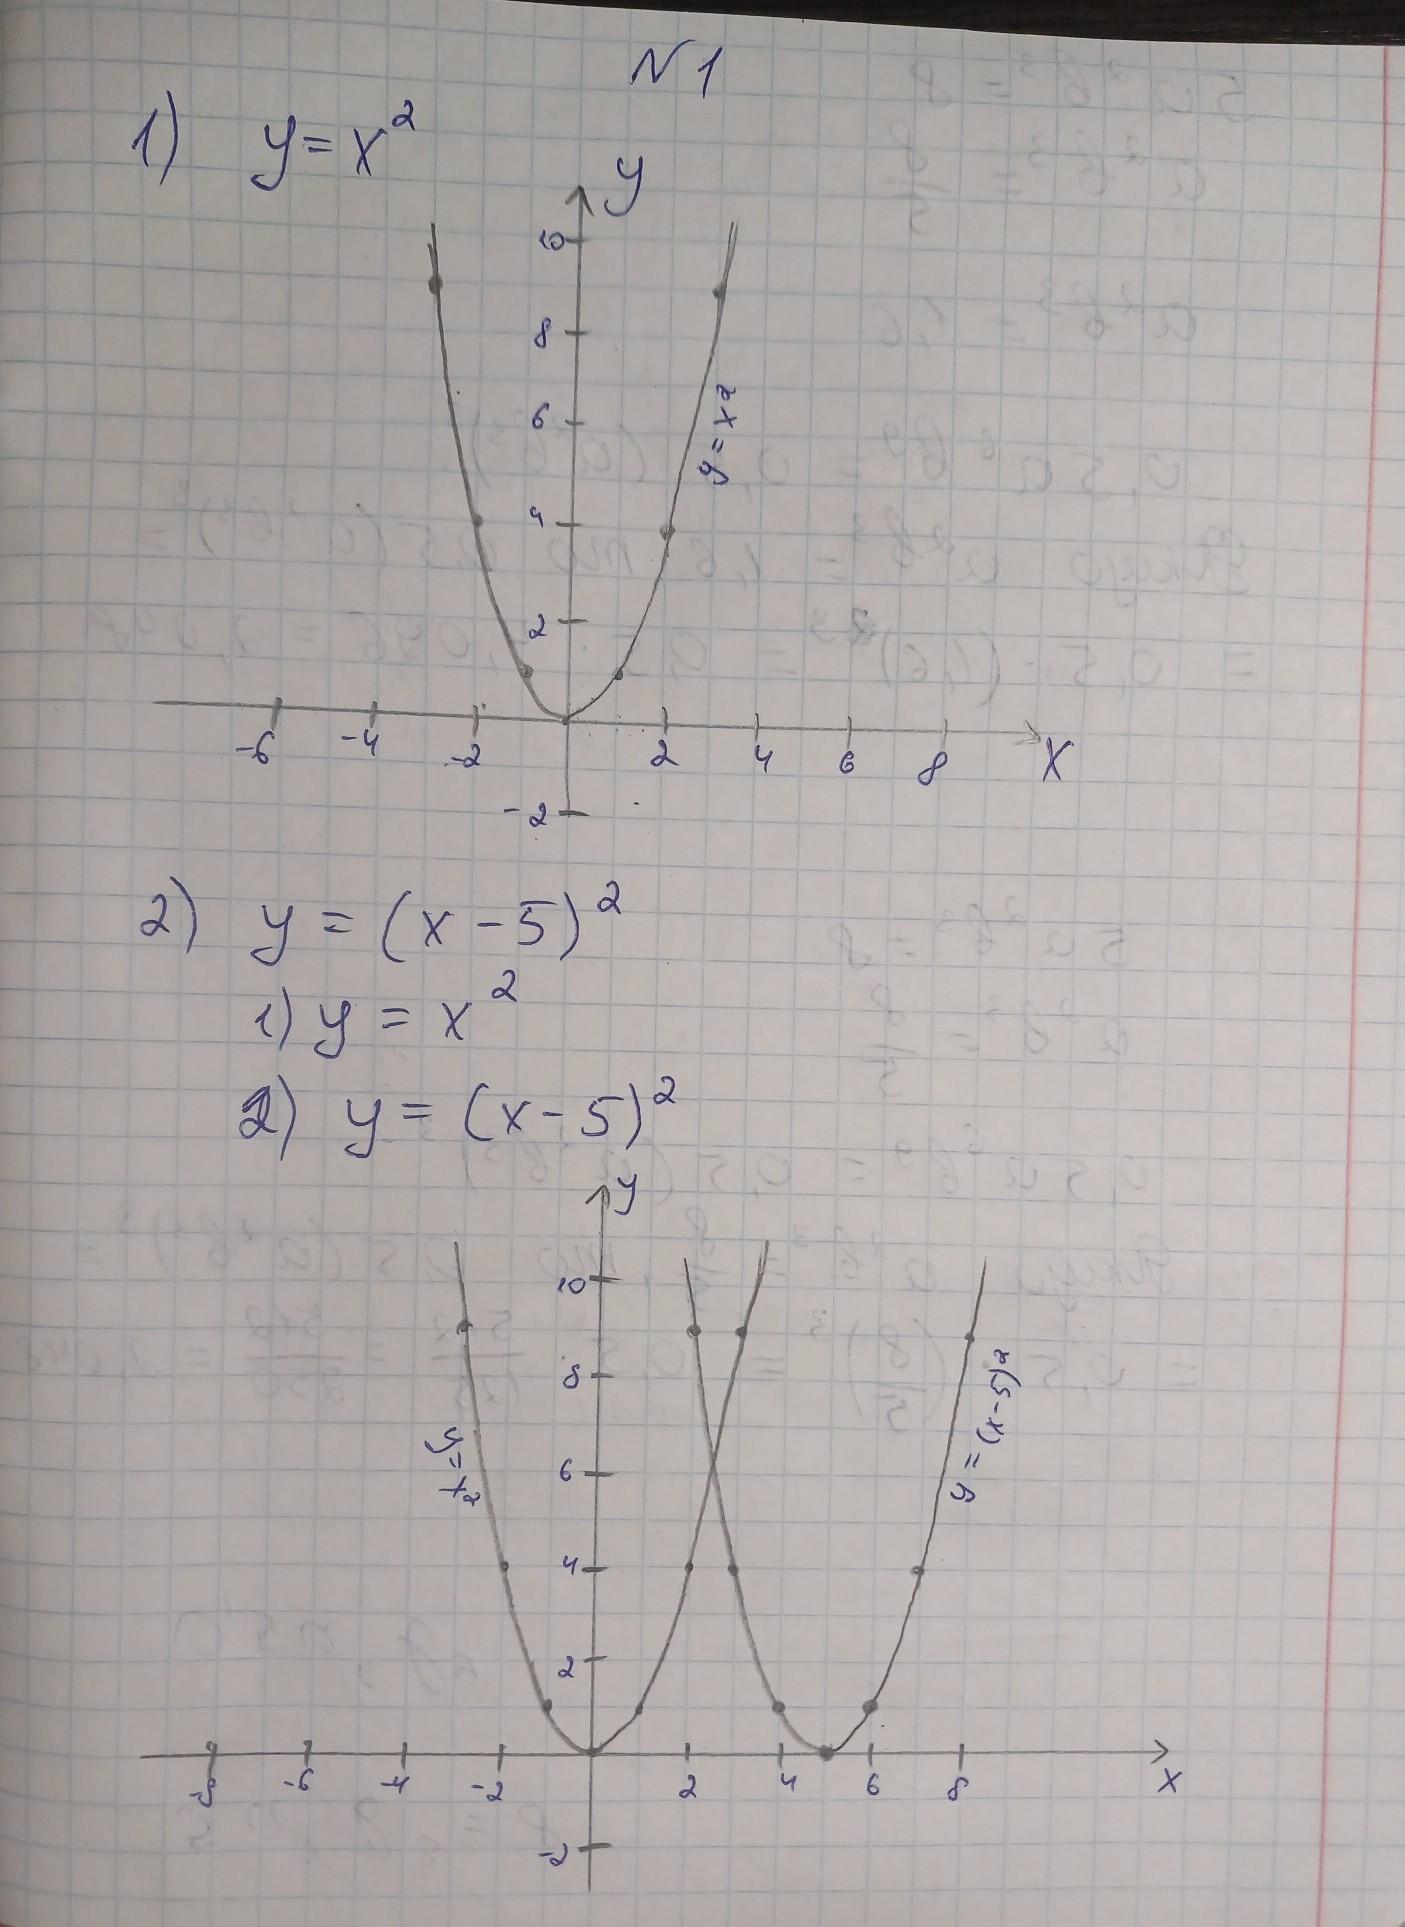 N 1
1) y = x²
y
10
8
6
y = x²
4
2
-6 -4 -2 2 4 6 8 x
-2
2) y = (x - 5)²
1) y = x²
2) y = (x - 5)²
y
10
8
y = x²
y = (x-5)²
6
4
2
-8 -6 -4 -2 2 4 6 8 x
-2